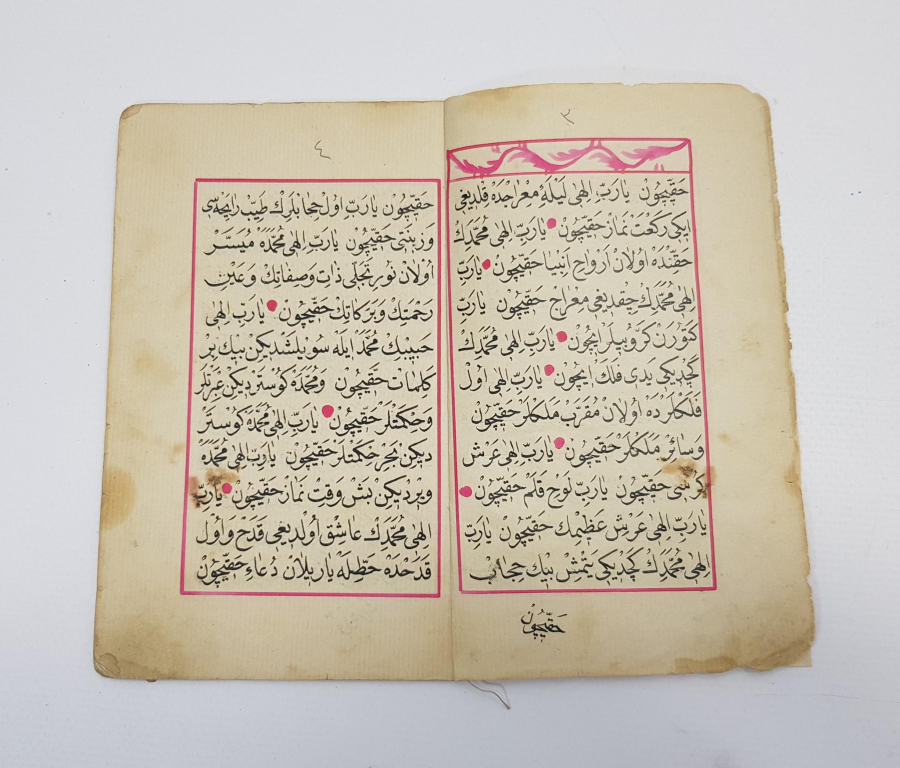 ٣
حَقِيچُون يَارَبِّ اِلٰهِى لَيْلَۀِ مِعْرَاجْدَه قِلْدِيغِى
ايكِى رَكْعَتْ نَمَازْ حَقِيچُونْ يَارَبِّ اِلٰهِى مُحَمَّدِكْ
حَقِّنْدَه اُولَانْ اَرْوَاحِ اَنْبِيَا حَقِيچُونْ يَارَبِّ
اِلٰهِى مُحَمَّدِكْ چِقْدِيغِى مِعْرَاجْ حَقِيچُونْ يَارَبِّ
كَرُّوبِيلَرْ ايچُونْ يَارَبِّ اِلٰهِى مُحَمَّدِكْ
كَچْدِيكِى يَدِى فَلَكْ ايچُونْ يَارَبِّ اِلٰهِى اُولْ
فَلَكْلَرْدَه اُولَانْ مُقَرَّبْ مَلَكْلَرْ حَقِيچُونْ
وَسَائِرْ مَلَكْلَرْ حَقِيچُونْ يَارَبِّ اِلٰهِى عَرْشِ
كُرْسِى حَقِيچُونْ يَارَبِّ لَوْحِ قَلَمْ حَقِيچُونْ
يَارَبِّ اِلٰهِى عَرْشِ عَظِيمِكْ حَقِيچُونْ يَارَبِّ
اِلٰهِى مُحَمَّدِكْ كَچْدِيكِى يَتْمِشْ بِيكْ حِجَابْ
حَقِيچُونْ
٤
حَقِيچُونْ يَارَبِّ اُولْ حِجَابْلَرِكْ طِيبْ رَايِحَه‌سِى
وَزِينَتِى حَقِيچُونْ يَارَبِّ اِلٰهِى مُحَمَّدَه مُيَسَّرْ
اُولَانْ نُورِ تَجَلِّى ذَاتْ وَصِفَاتِكْ وَعَيْنِ
رَحْمَتِكْ وَبَرَكَاتِكْ حَقِيچُونْ يَارَبِّ اِلٰهِى
حَبِيبِكْ مُحَمَّدْ ايلَه سُويْلَشْدِيكِنْ بِيكْ بِرْ
كَلِمَاتْ حَقِيچُونْ وَمُحَمَّدَه كُوسْتَرْدِيكِنْ عِزَّتْلَرْ
وَحِكْمَتْلَرْ حَقِيچُونْ يَارَبِّ اِلٰهِى مُحَمَّدَه كُوسْتَرْ
دِيكِنْ حِكْمَتْلَرْ حَقِيچُونْ يَارَبِّ اِلٰهِى مُحَمَّدَه
وِيرْدِيكِنْ بَشْ وَقِتْ نَمَازْ حَقِيچُونْ يَارَبِّ
اِلٰهِى مُحَمَّدِكْ عَاشِقْ اُولْدِيغِى قَدَحْ وَاُولْ
قَدَحْدَه خَطِّلَه يَازِيلَانْ دُعَاءِ حَقِيچُونْ